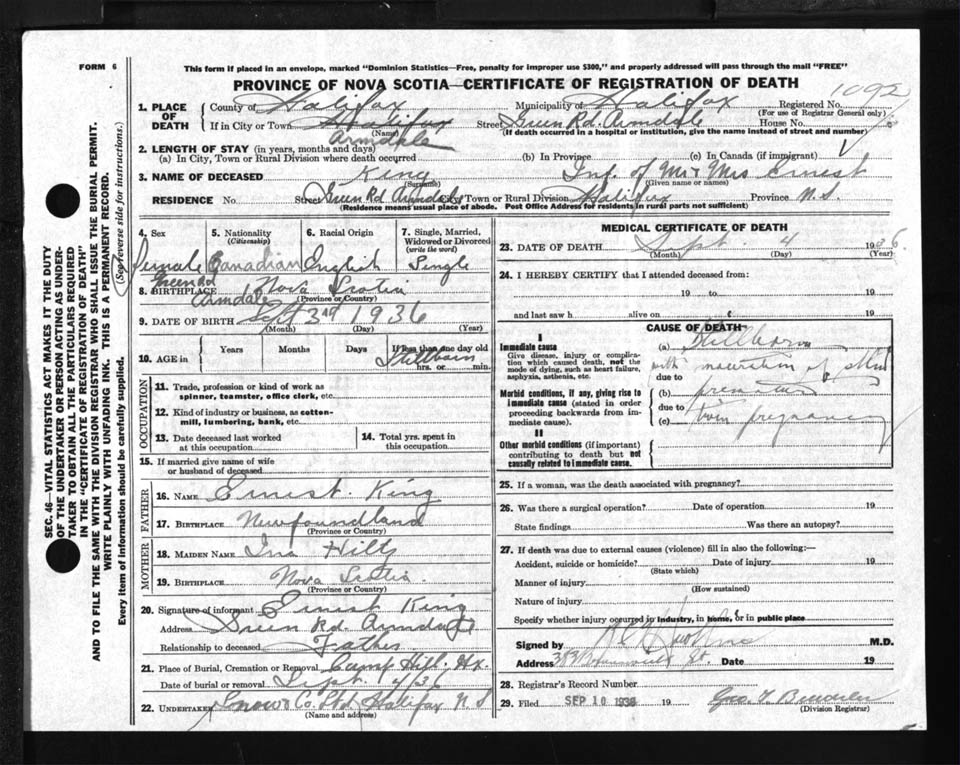 FORM 6
This form if placed in an envelope, marked "Dominion Statistics—Free, penalty for improper use $300," and properly addressed will pass through the mail "FREE"
PROVINCE OF NOVA SCOTIA—CERTIFICATE OF REGISTRATION OF DEATH
1092
1. PLACE OF DEATH County of Halifax Municipality of Halifax Registered No.
(For use of Registrar General only)
If in City or Town Halifax Street Green Rd. Armdale House No.
(Name) (If death occurred in a hospital or institution, give the name instead of street and number)
Armdale
2. LENGTH OF STAY (in years, months and days)
(a) In City, Town or Rural Division where death occurred (b) In Province (c) In Canada (if immigrant)
3. NAME OF DECEASED King Inf. of Mr & Mrs Ernest
(Surname) (Given name or names)
RESIDENCE No Street Green Rd Armdale City/Town or Rural Division Halifax Province N.S.
(Residence means usual place of abode. Post Office Address for residents in rural parts not sufficient)
4. Sex 5. Nationality (Citizenship) 6. Racial Origin 7. Single, Married, Widowed or Divorced (write the word)
Female Canadian English Single
Green Rd
8. BIRTHPLACE Armdale Nova Scotia
(Province or Country)
9. DATE OF BIRTH Sept 3rd 1936
(Month) (Day) (Year)
10. AGE in Years Months Days If less than one day old
Stillborn
hrs. or min.
OCCUPATION
11. Trade, profession or kind of work as spinner, teamster, office clerk, etc.
12. Kind of industry or business, as cotton-mill, lumbering, bank, etc.
13. Date deceased last worked at this occupation
14. Total yrs. spent in this occupation
15. If married give name of wife or husband of deceased
FATHER
16. NAME Ernest King
17. BIRTHPLACE Newfoundland
(Province or Country)
MOTHER
18. MAIDEN NAME Ina Hills
19. BIRTHPLACE Nova Scotia
(Province or Country)
20. Signature of informant Ernest King
Address Green Rd. Armdale
Relationship to deceased Father
21. Place of Burial, Cremation or Removal Camp Hill. Hx.
Date of burial or removal Sept. 4/36
22. UNDERTAKER Snow & Co. Ltd. Halifax N S
(Name and address)
MEDICAL CERTIFICATE OF DEATH
23. DATE OF DEATH Sept. 4 1936.
(Month) (Day) (Year)
24. I HEREBY CERTIFY that I attended deceased from:
19 to 19
and last saw h alive on 19
CAUSE OF DEATH
I
Immediate cause
Give disease, injury or complication which caused death, not the mode of dying, such as heart failure, asphyxia, asthenia, etc.
(a) Stillborn
with maceration of skin
due to
Morbid conditions, if any, giving rise to immediate cause (stated in order proceeding backwards from immediate cause).
(b)
due to
(c) twin pregnancy
II
Other morbid conditions (if important) contributing to death but not causally related to immediate cause.
25. If a woman, was the death associated with pregnancy?
26. Was there a surgical operation? Date of operation 19
State findings Was there an autopsy?
27. If death was due to external causes (violence) fill in also the following:—
Accident, suicide or homicide? Date of injury 19
(State which)
Manner of injury
(How sustained)
Nature of injury
Specify whether injury occurred in industry, in home, or in public place
Signed by M.D.
Address St. Date 19
28. Registrar's Record Number
29. Filed SEP 10 1936 19
(Division Registrar)
SEC. 46—VITAL STATISTICS ACT MAKES IT THE DUTY
OF THE UNDERTAKER OR PERSON ACTING AS UNDERTAKER
TO OBTAIN ALL THE PARTICULARS REQUIRED
IN THE "CERTIFICATE OF REGISTRATION OF DEATH"
AND TO FILE THE SAME WITH THE DIVISION REGISTRAR WHO SHALL ISSUE THE BURIAL PERMIT.
WRITE PLAINLY WITH UNFADING INK. THIS IS A PERMANENT RECORD.
Every item of information should be carefully supplied. (See reverse side for instructions.)